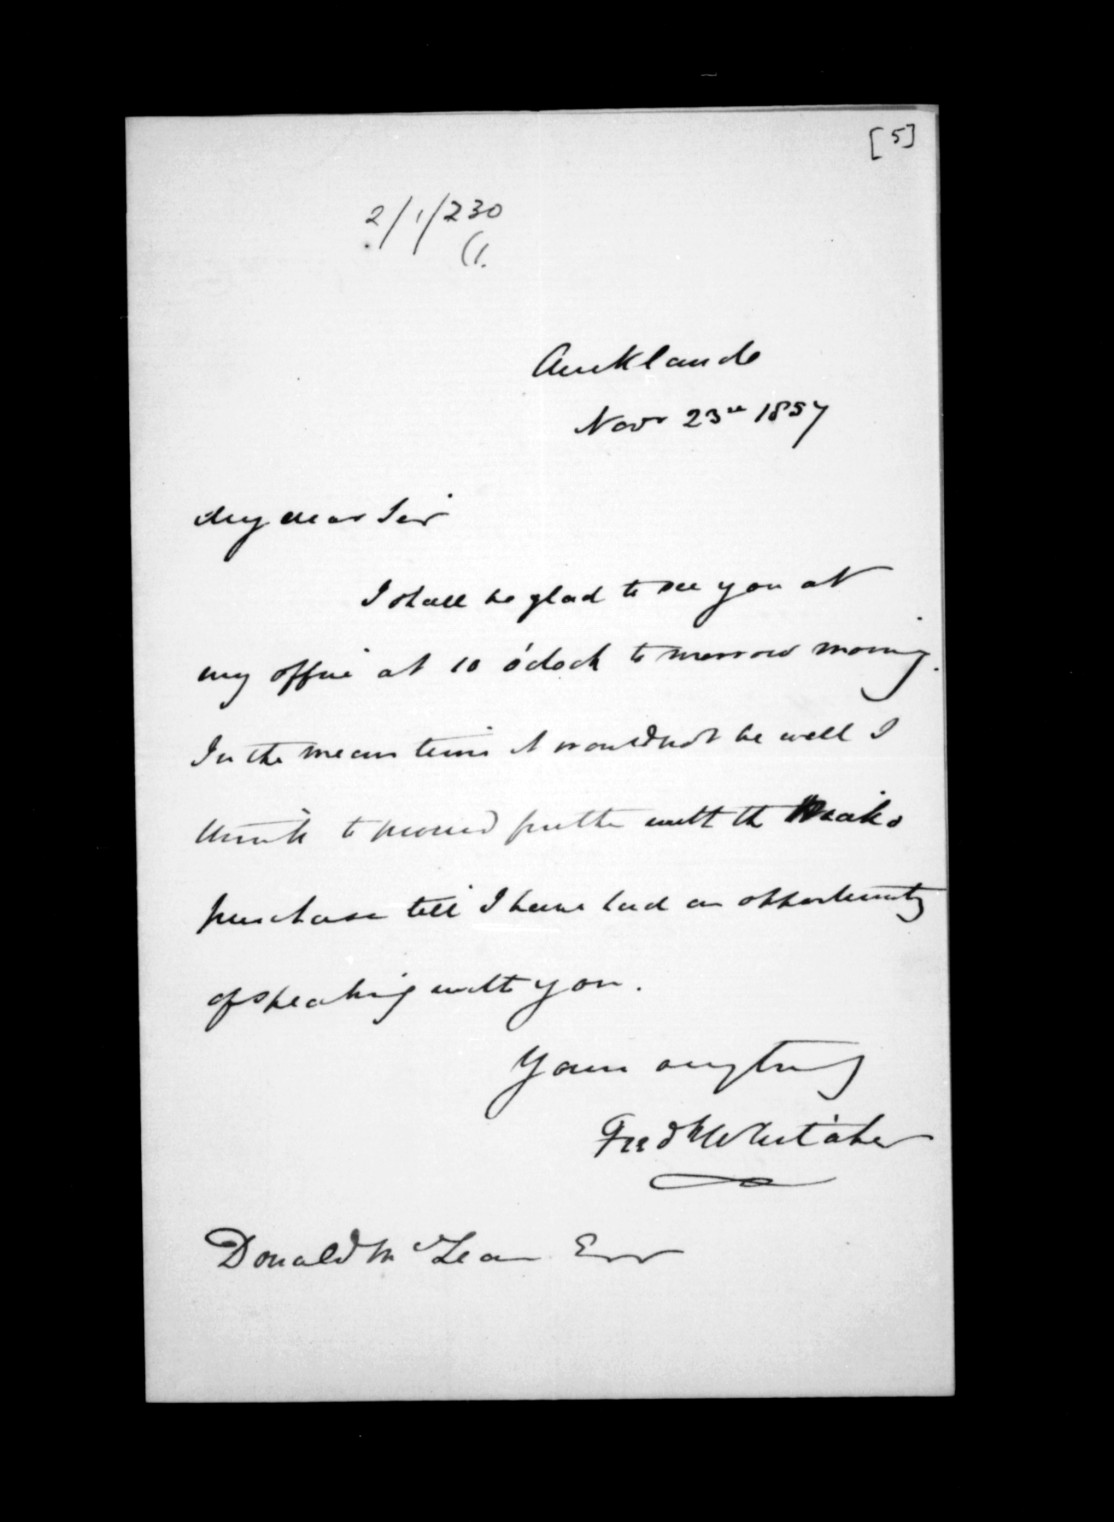 [5]
2/1/230
Auckland
Novr 23rd 1857
My dear Sir
I shall be glad to see you at
my office at 10 o'clock to morrow morning.
In the mean time it would not be well I
think to proceed further with the Piako
purchase till I have had an opportunity
of speaking with you.
Yours very truly
Fredk Whitaker
Donald McLean Esqr